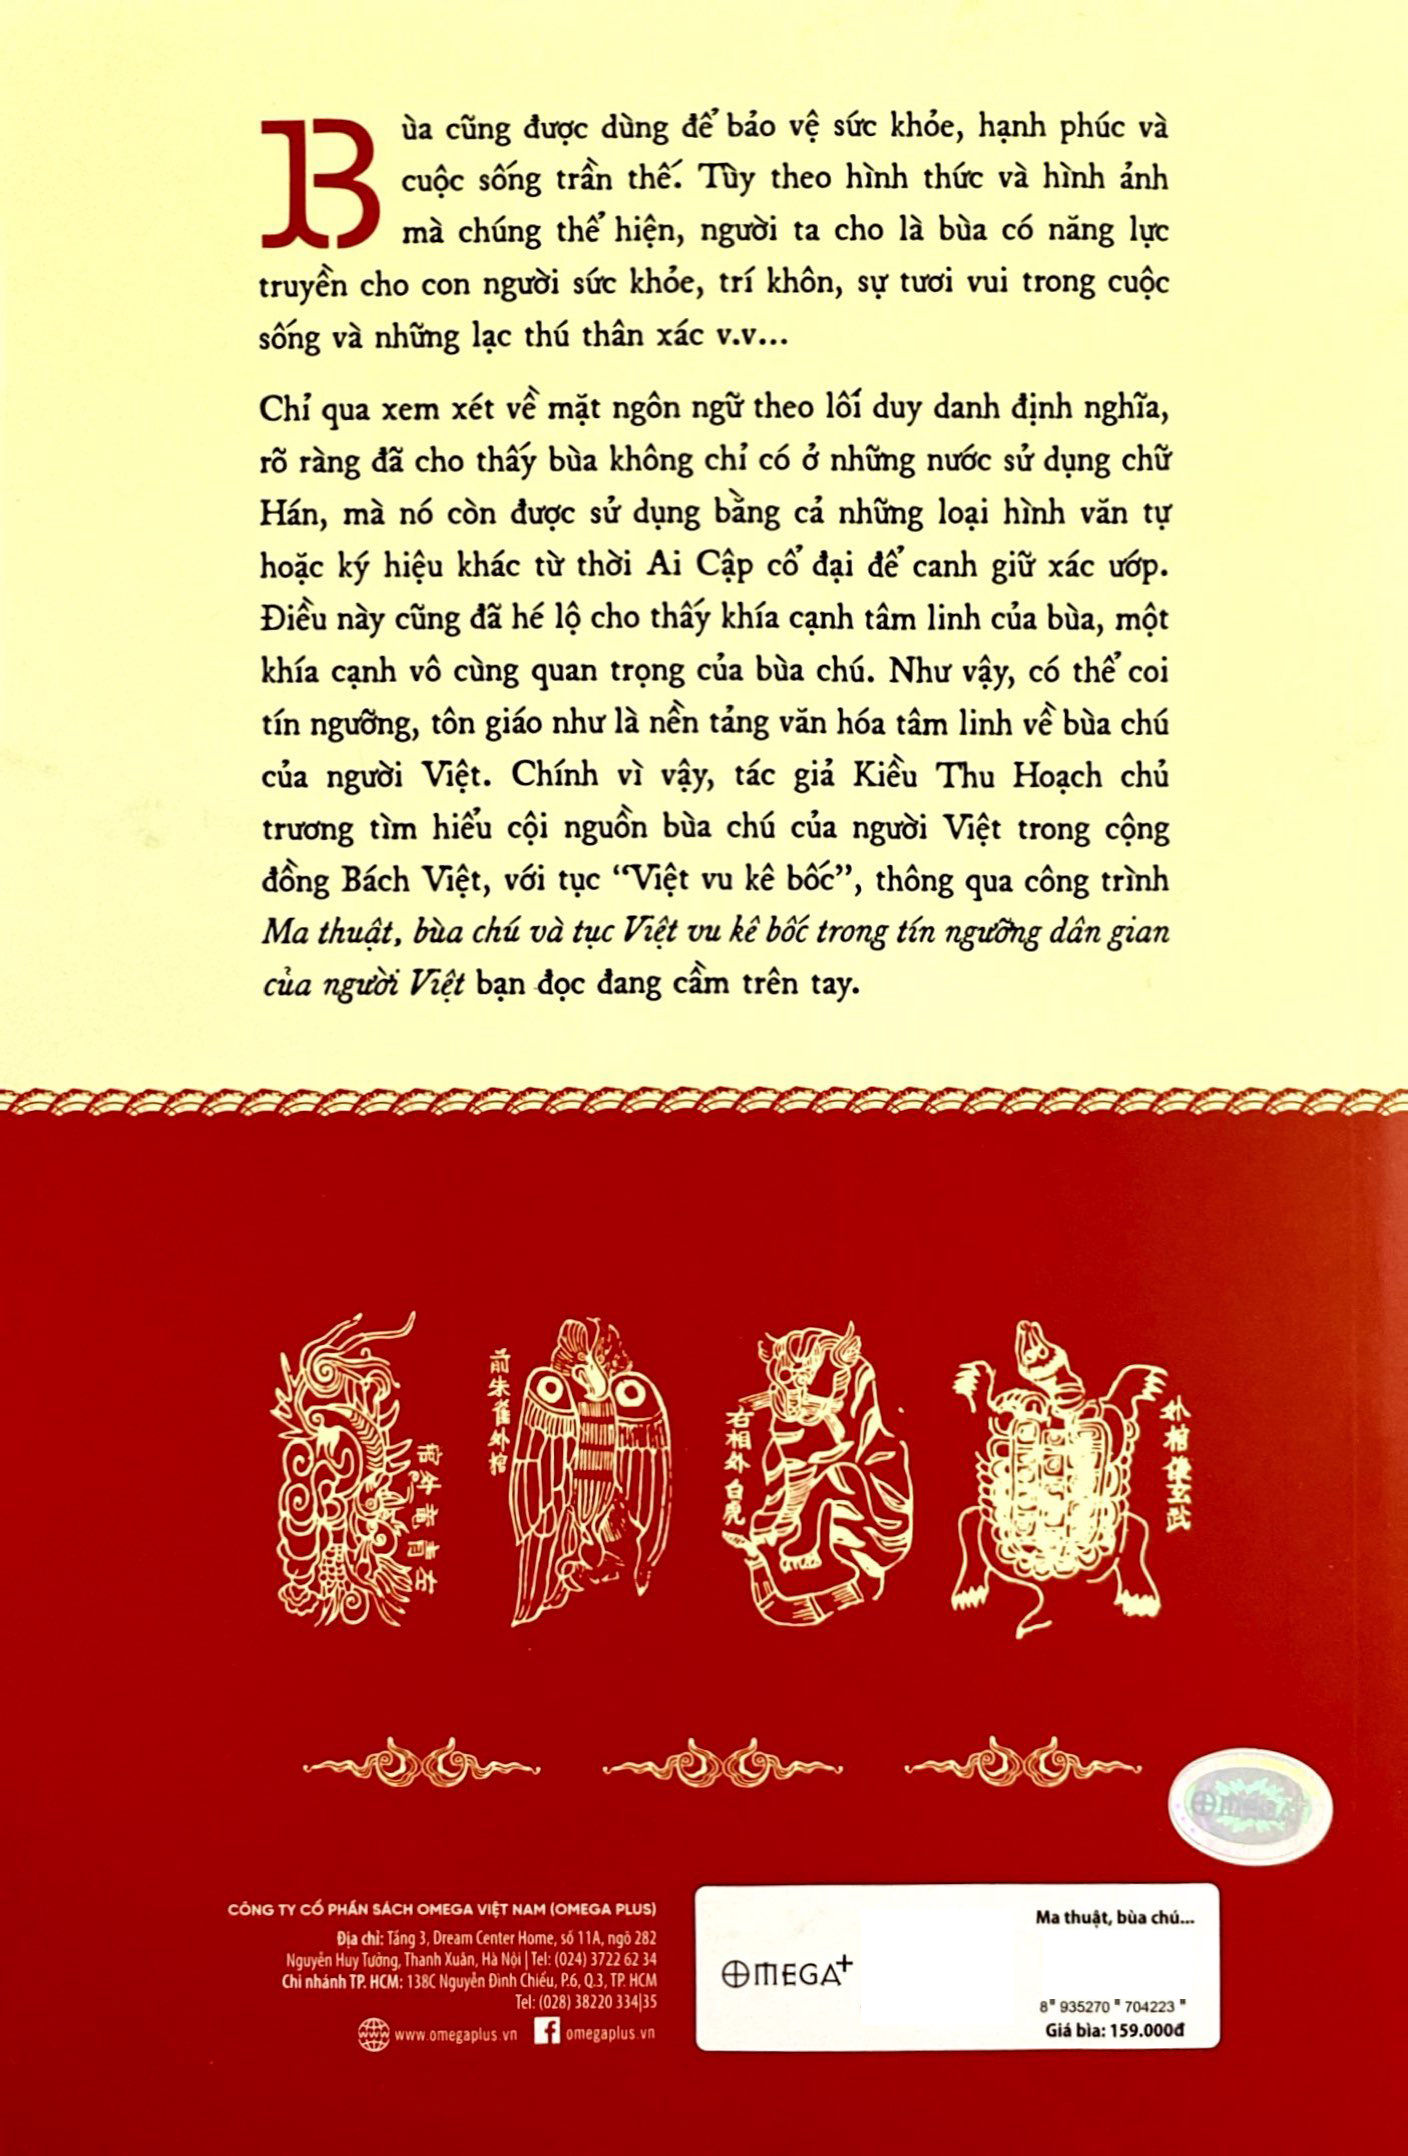 Bùa cũng được dùng để bảo vệ sức khỏe, hạnh phúc và
cuộc sống trần thế. Tùy theo hình thức và hình ảnh
mà chúng thể hiện, người ta cho là bùa có năng lực
truyền cho con người sức khỏe, trí khôn, sự tươi vui trong cuộc
sống và những lạc thú thân xác v.v...
Chỉ qua xem xét về mặt ngôn ngữ theo lối duy danh định nghĩa,
rõ ràng đã cho thấy bùa không chỉ có ở những nước sử dụng chữ
Hán, mà nó còn được sử dụng bằng cả những loại hình văn tự
hoặc ký hiệu khác từ thời Ai Cập cổ đại để canh giữ xác ướp.
Điều này cũng đã hé lộ cho thấy khía cạnh tâm linh của bùa, một
khía cạnh vô cùng quan trọng của bùa chú. Như vậy, có thể coi
tín ngưỡng, tôn giáo như là nền tảng văn hóa tâm linh về bùa chú
của người Việt. Chính vì vậy, tác giả Kiều Thu Hoạch chủ
trương tìm hiểu cội nguồn bùa chú của người Việt trong cộng
đồng Bách Việt, với tục “Việt vu kê bốc”, thông qua công trình
Ma thuật, bùa chú và tục Việt vu kê bốc trong tín ngưỡng dân gian
của người Việt bạn đọc đang cầm trên tay.
前朱雀外棺
右相外白虎
OMEGA+
CÔNG TY CỔ PHẦN SÁCH OMEGA VIỆT NAM (OMEGA PLUS)
Địa chỉ: Tầng 3, Dream Center Home, số 11A, ngõ 282
Nguyễn Huy Tưởng, Thanh Xuân, Hà Nội | Tel: (024) 3722 62 34
Chi nhánh TP. HCM: 138C Nguyễn Đình Chiểu, P.6, Q.3, TP. HCM
Tel: (028) 38220 334|35
www.omegaplus.vn
omegaplus.vn
OMEGA+
Ma thuật, bùa chú...
8 935270 704223
Giá bìa: 159.000đ